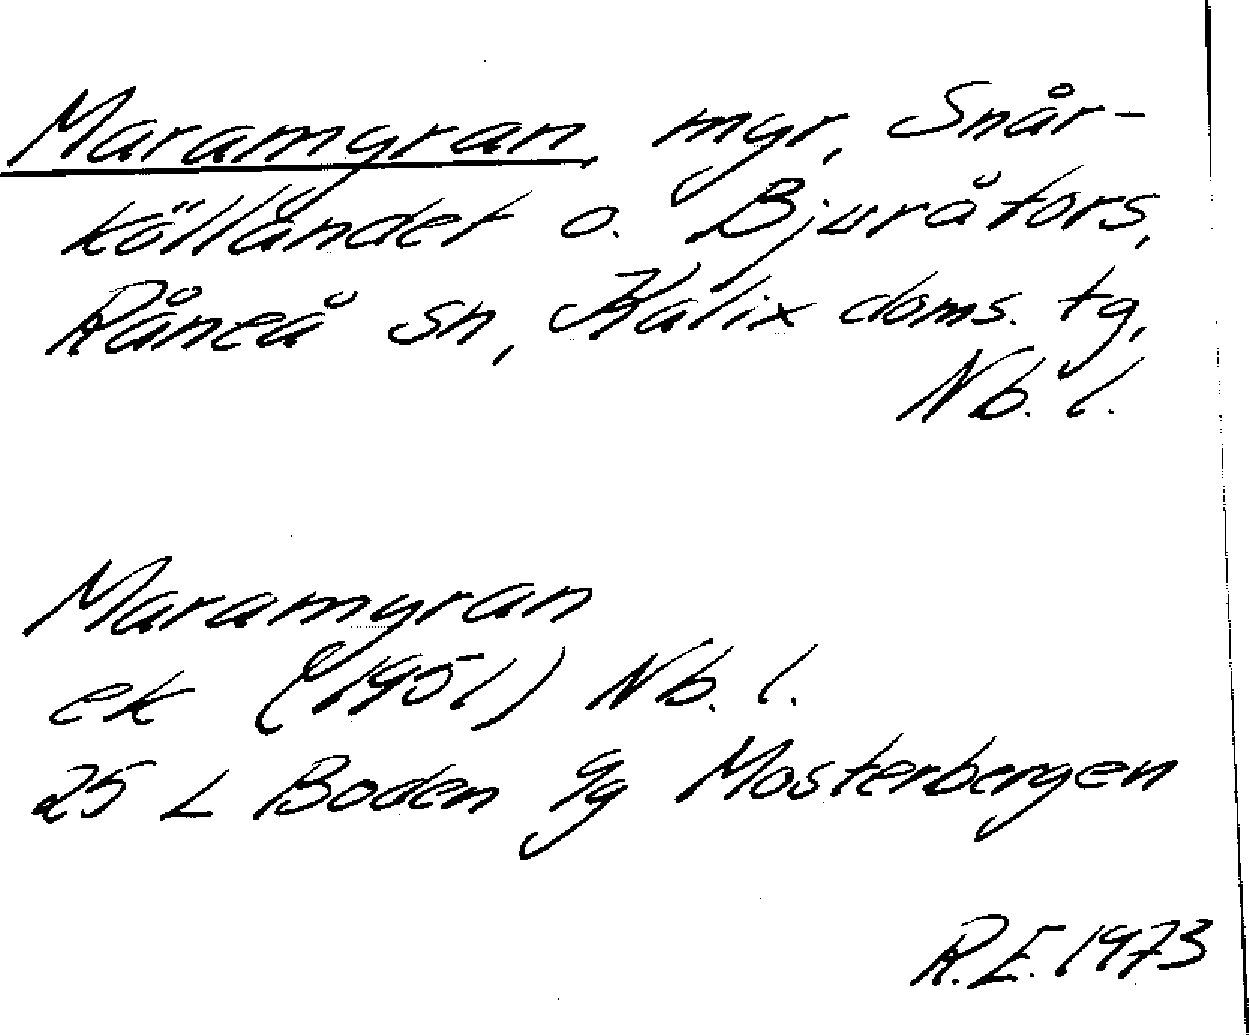 Maramyran, myr, Snår-
kölländet o. Bjuråfors,
Råneå sn, Kalix doms. tg,
Nb. l.
Maramyran
ek (1951) Nb. l.
25 L Boden 9g Mosterbergen
R.E. 1973